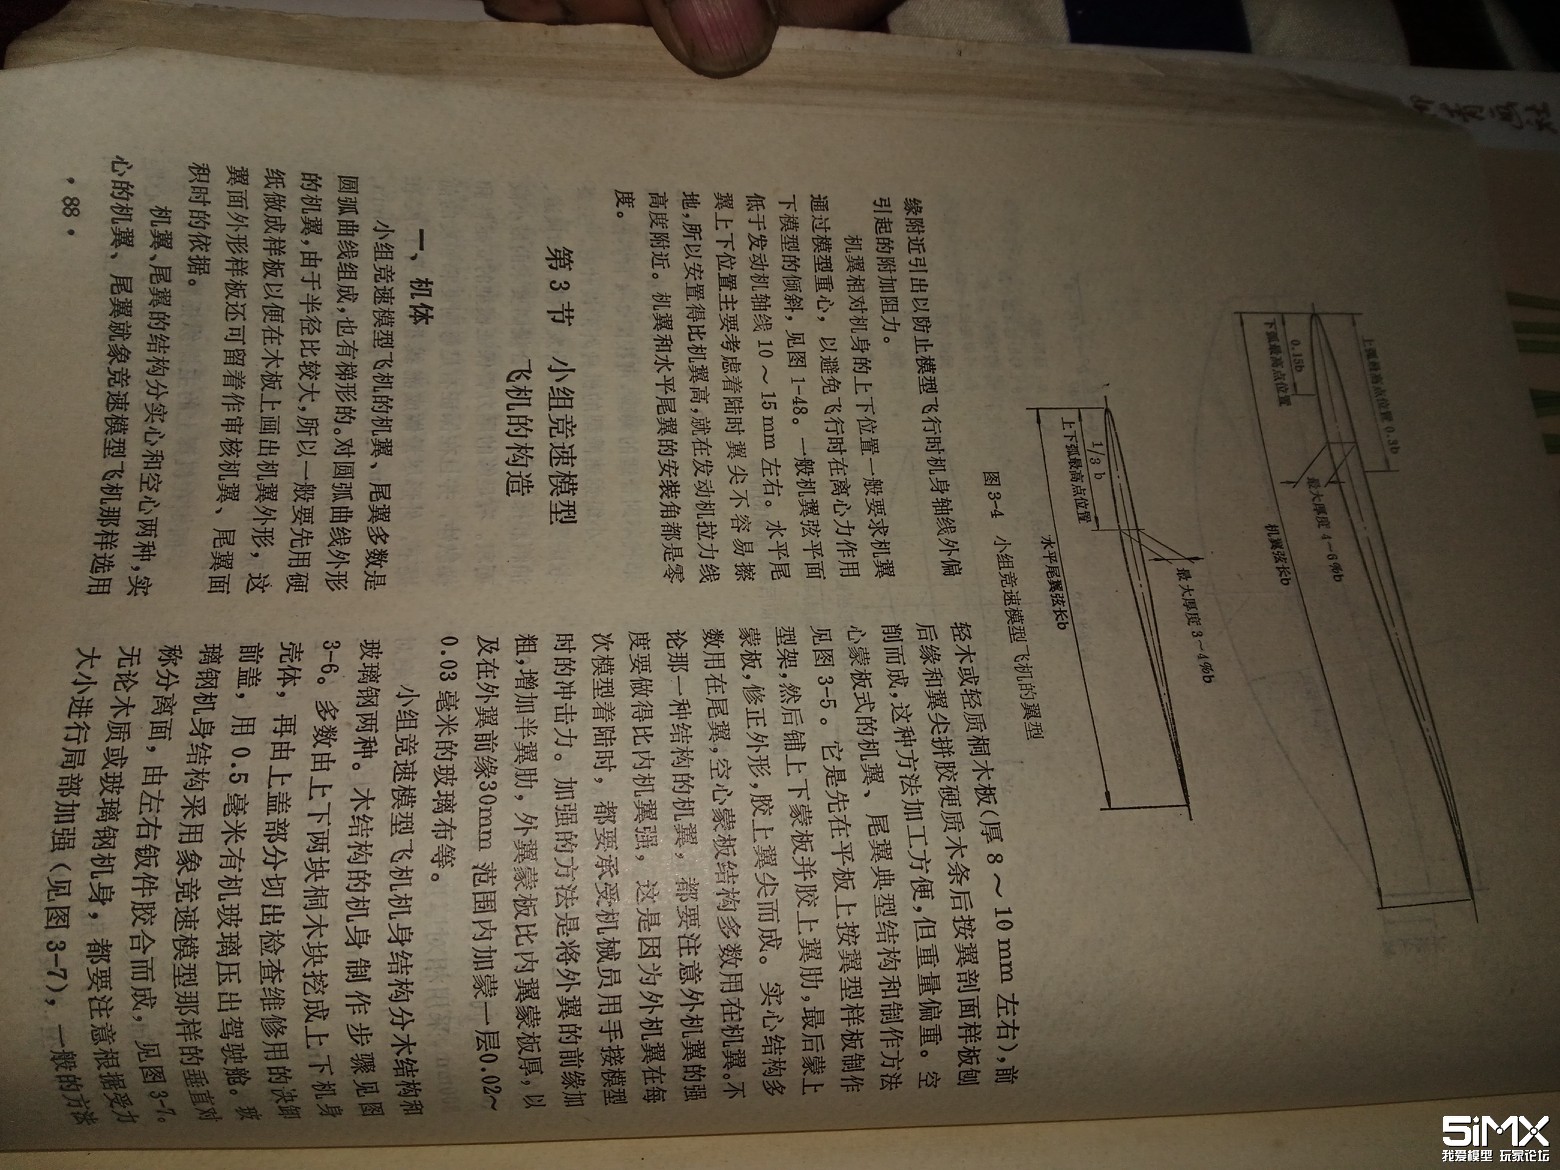 上弧最高点位置0.3b
0.15b
下弧最高点位置
最大厚度4-6%b
机翼弦长b
1/3 b
上下弧最高点位置
最大厚度3-4%b
水平尾翼弦长b
图3-4 小组竞速模型飞机的翼型
缘附近引出以防止模型飞行时机身轴线外偏
引起的附加阻力。
机翼相对机身的上下位置一般要求机翼
通过模型重心，以避免飞行时在离心力作用
下模型的倾斜，见图1-48。一般机翼弦平面
低于发动机轴线10～15mm左右。水平尾
翼上下位置主要考虑着陆时翼尖不容易擦
地，所以安置得比机翼高，就在发动机拉力线
高度附近。机翼和水平尾翼的安装角都是零
度。
第3节 小组竞速模型
飞机的构造
一、机体
小组竞速模型飞机的机翼、尾翼多数是
圆弧曲线组成，也有梯形的。对圆弧曲线外形
的机翼，由于半径比较大，所以一般要先用硬
纸做成样板以便在木板上画出机翼外形，这
翼面外形样板还可留着作审核机翼、尾翼面
积时的依据。
机翼、尾翼的结构分实心和空心两种，实
心的机翼、尾翼就象竞速模型飞机那样选用
·88·
轻木或轻质桐木板（厚8～10mm左右），前
后缘和翼尖拼胶硬质木条后按翼剖面样板刨
削而成，这种方法加工方便，但重量偏重。空
心蒙板式的机翼、尾翼典型结构和制作方法
见图3-5。它是先在平板上按翼型样板制作
型架，然后铺上下蒙板并胶上翼肋，最后蒙上
蒙板，修正外形，胶上翼尖而成。实心结构多
数用在尾翼，空心蒙板结构多数用在机翼。不
论那一种结构的机翼，都要注意外机翼的强
度要做得比内机翼强，这是因为外机翼在每
次模型着陆时，都要承受机械员用手接模型
时的冲击力。加强的方法是将外翼的前缘加
粗，增加半翼肋，外翼蒙板比内翼蒙板厚，以
及在外翼前缘30mm范围内加蒙一层0.02～
0.03毫米的玻璃布等。
小组竞速模型飞机机身结构分木结构和
玻璃钢两种。木结构的机身制作步骤见图
3-6。多数由上下两块桐木块挖成上下机身
壳体，再由上盖部分切出检查维修用的快卸
前盖，用0.5毫米有机玻璃压出驾驶舱。玻
璃钢机身结构采用象竞速模型那样的垂直对
称分离面，由左右钣件胶合而成，见图3-7。
无论木质或玻璃钢机身，都要注意根据受力
大小进行局部加强（见图3-7），一般的方法
5iMX
我爱模型 玩家论坛